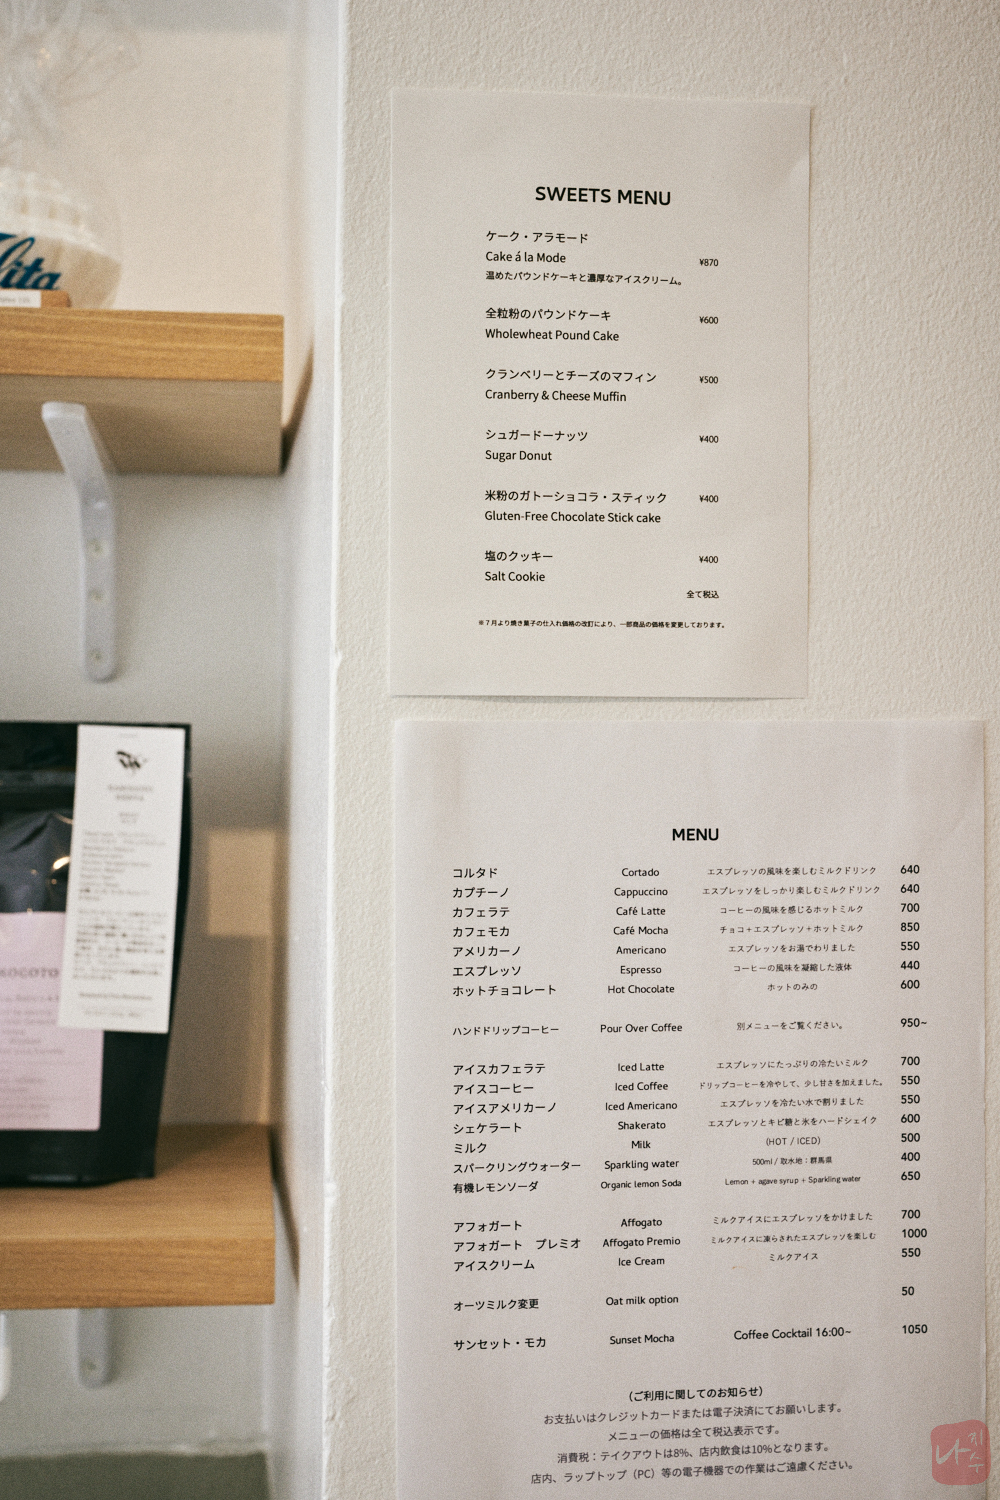 SWEETS MENU
ケーク・アラモード
Cake á la Mode ¥870
温めたパウンドケーキと濃厚なアイスクリーム。
全粒粉のパウンドケーキ ¥600
Wholewheat Pound Cake
クランベリーとチーズのマフィン ¥500
Cranberry & Cheese Muffin
シュガードーナッツ ¥400
Sugar Donut
米粉のガトーショコラ・スティック ¥400
Gluten-Free Chocolate Stick cake
塩のクッキー ¥400
Salt Cookie
全て税込
※７月より焼き菓子の仕入れ価格の改訂により、一部商品の価格を変更しております。
MENU
コルタド Cortado エスプレッソの風味を楽しむミルクドリンク 640
カプチーノ Cappuccino エスプレッソをしっかり楽しむミルクドリンク 640
カフェラテ Café Latte コーヒーの風味を感じるホットミルク 700
カフェモカ Café Mocha チョコ＋エスプレッソ＋ホットミルク 850
アメリカーノ Americano エスプレッソをお湯でわりました 550
エスプレッソ Espresso コーヒーの風味を凝縮した液体 440
ホットチョコレート Hot Chocolate ホットのみの 600
ハンドドリップコーヒー Pour Over Coffee 別メニューをご覧ください。 950~
アイスカフェラテ Iced Latte エスプレッソにたっぷりの冷たいミルク 700
アイスコーヒー Iced Coffee ドリップコーヒーを冷やして、少し甘さを加えました。 550
アイスアメリカーノ Iced Americano エスプレッソを冷たい水で割りました 550
シェケラート Shakerato エスプレッソとキビ糖と氷をハードシェイク 600
ミルク Milk （HOT / ICED） 500
スパークリングウォーター Sparkling water 500ml / 取水地：群馬県 400
有機レモンソーダ Organic lemon Soda Lemon + agave syrup + Sparkling water 650
アフォガート Affogato ミルクアイスにエスプレッソをかけました 700
アフォガート　プレミオ Affogato Premio ミルクアイスに凍らされたエスプレッソを楽しむ 1000
アイスクリーム Ice Cream ミルクアイス 550
オーツミルク変更 Oat milk option 50
サンセット・モカ Sunset Mocha Coffee Cocktail 16:00~ 1050
（ご利用に関してのお知らせ）
お支払いはクレジットカードまたは電子決済にてお願いします。
メニューの価格は全て税込表示です。
消費税：テイクアウトは8%、店内飲食は10%となります。
店内、ラップトップ（PC）等の電子機器での作業はご遠慮ください。
나지수